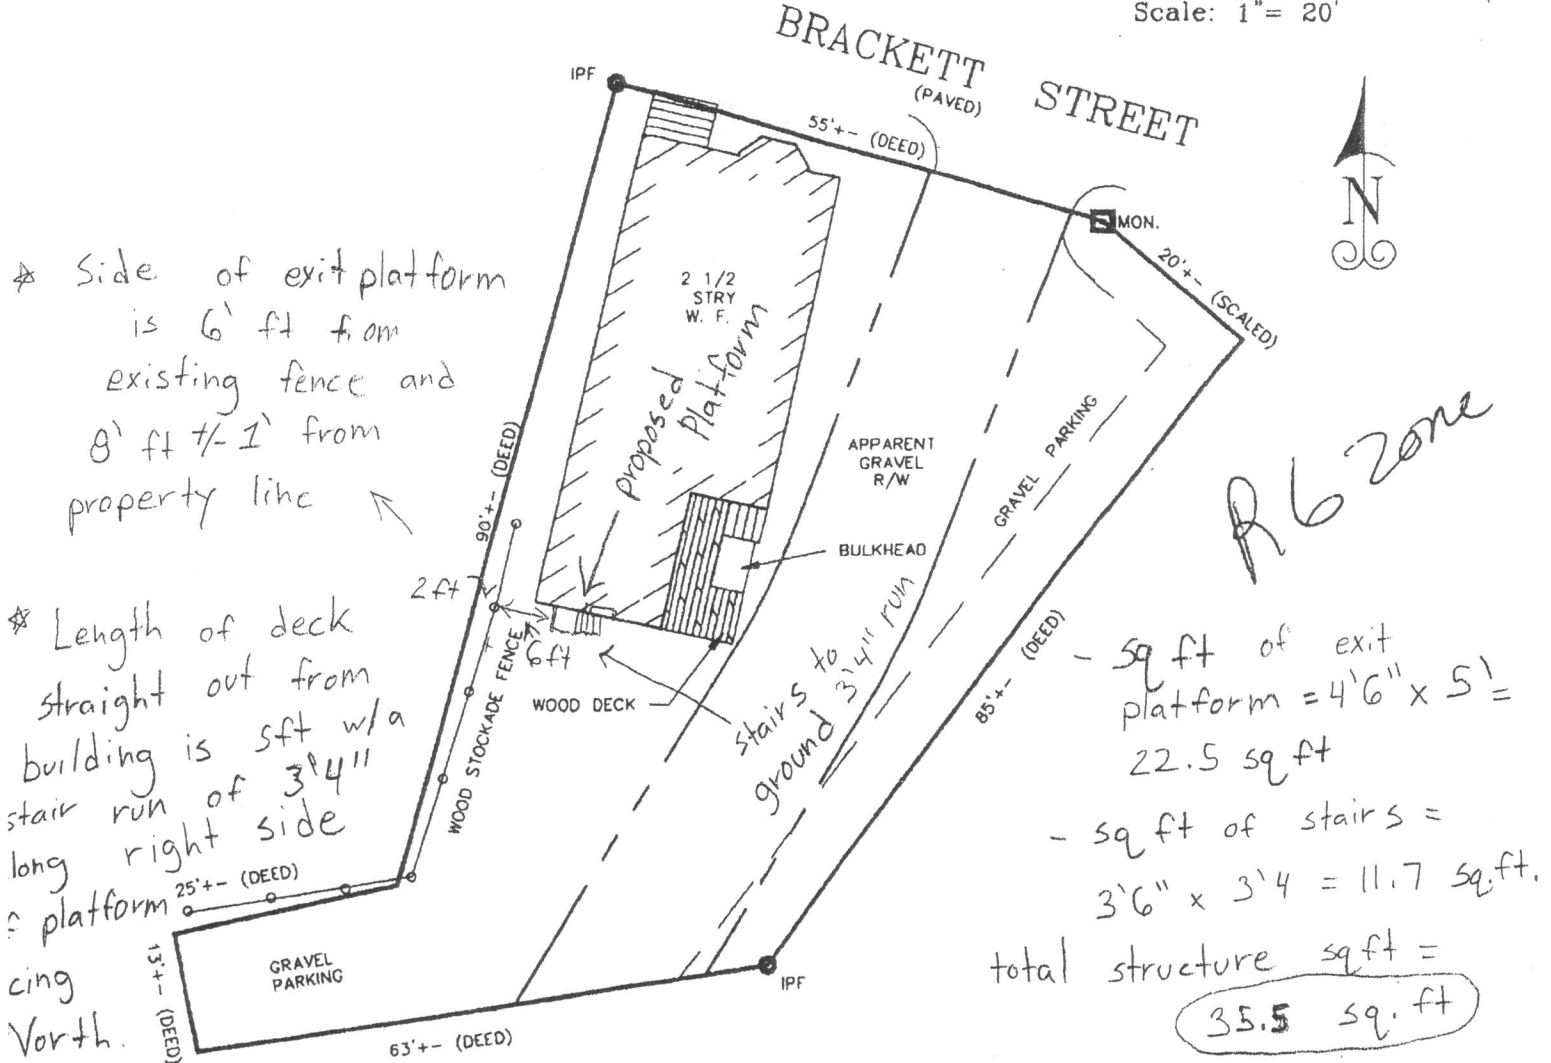 Scale: 1"= 20'
BRACKETT STREET
(PAVED)
IPF
55'+- (DEED)
MON.
N
20'+- (SCALED)
* Side of exit platform
is 6' ft from
existing fence and
8' ft +/- 1' from
property line
2 1/2
STRY
W. F.
proposed
Platform
90'+- (DEED)
APPARENT
GRAVEL
R/W
GRAVEL PARKING
R6 Zone
BULKHEAD
2ft
6ft
WOOD DECK
WOOD STOCKADE FENCE
stairs to
ground 3'4" run
85'+- (DEED)
* Length of deck
straight out from
building is 5ft w/a
stair run of 3'4"
long right side
platform
cing
North.
25'+- (DEED)
13'+- (DEED)
GRAVEL
PARKING
63'+- (DEED)
IPF
- sq ft of exit
platform = 4'6" x 5' =
22.5 sq ft
- sq ft of stairs =
3'6" x 3'4 = 11.7 sq.ft.
total structure sq ft =
35.5 sq. ft